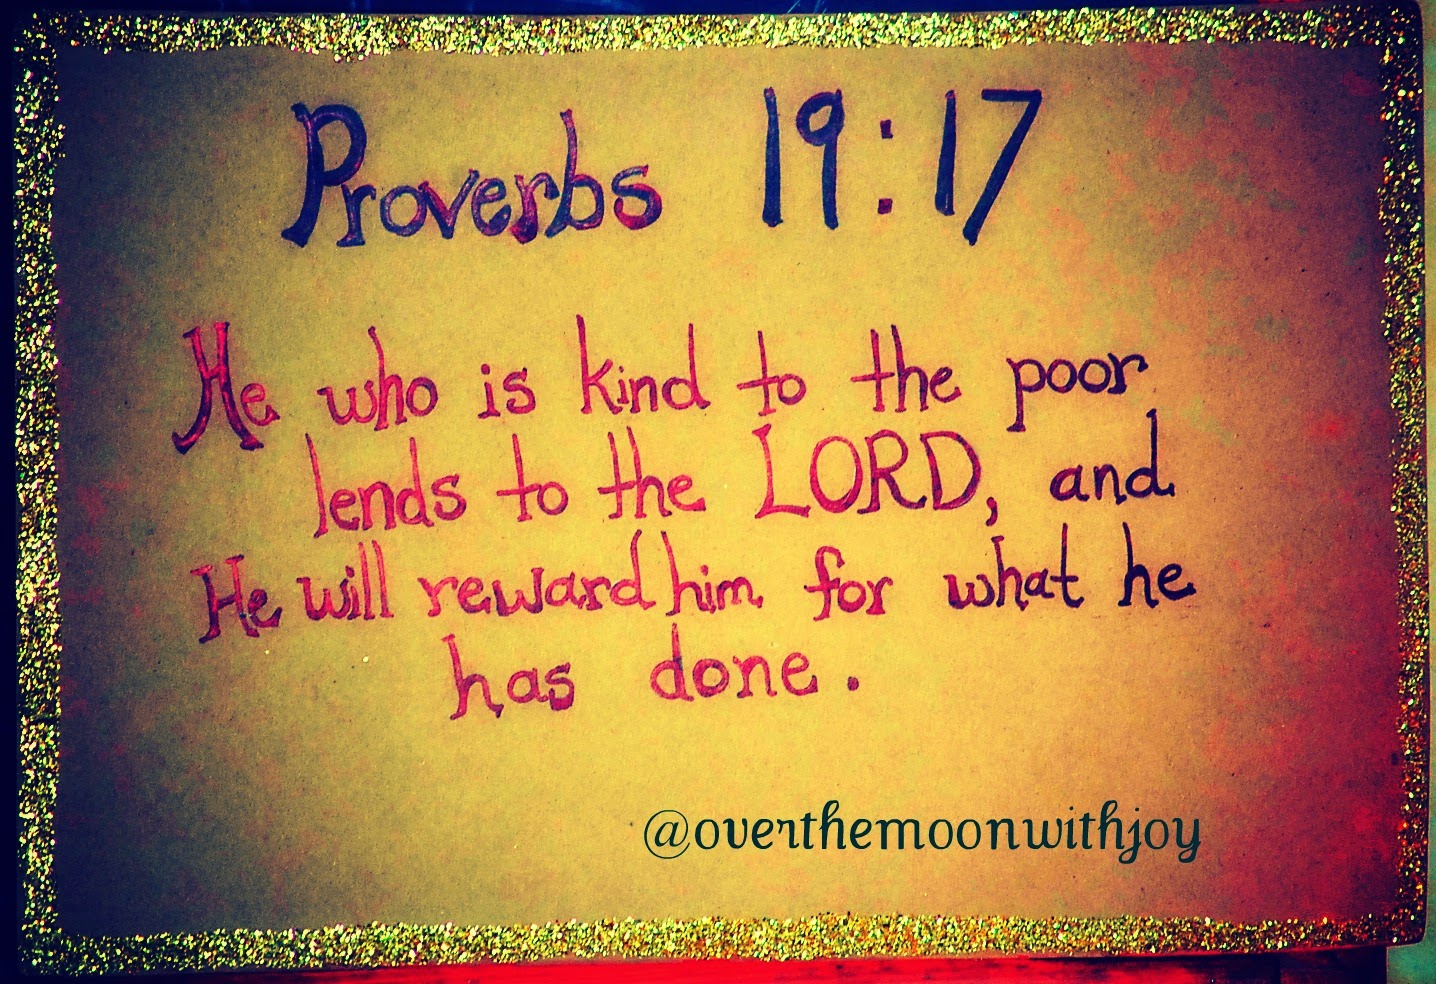 Proverbs 19:17
He who is kind to the poor
lends to the LORD, and
He will reward him for what he
has done.
@overthemoonwithjoy